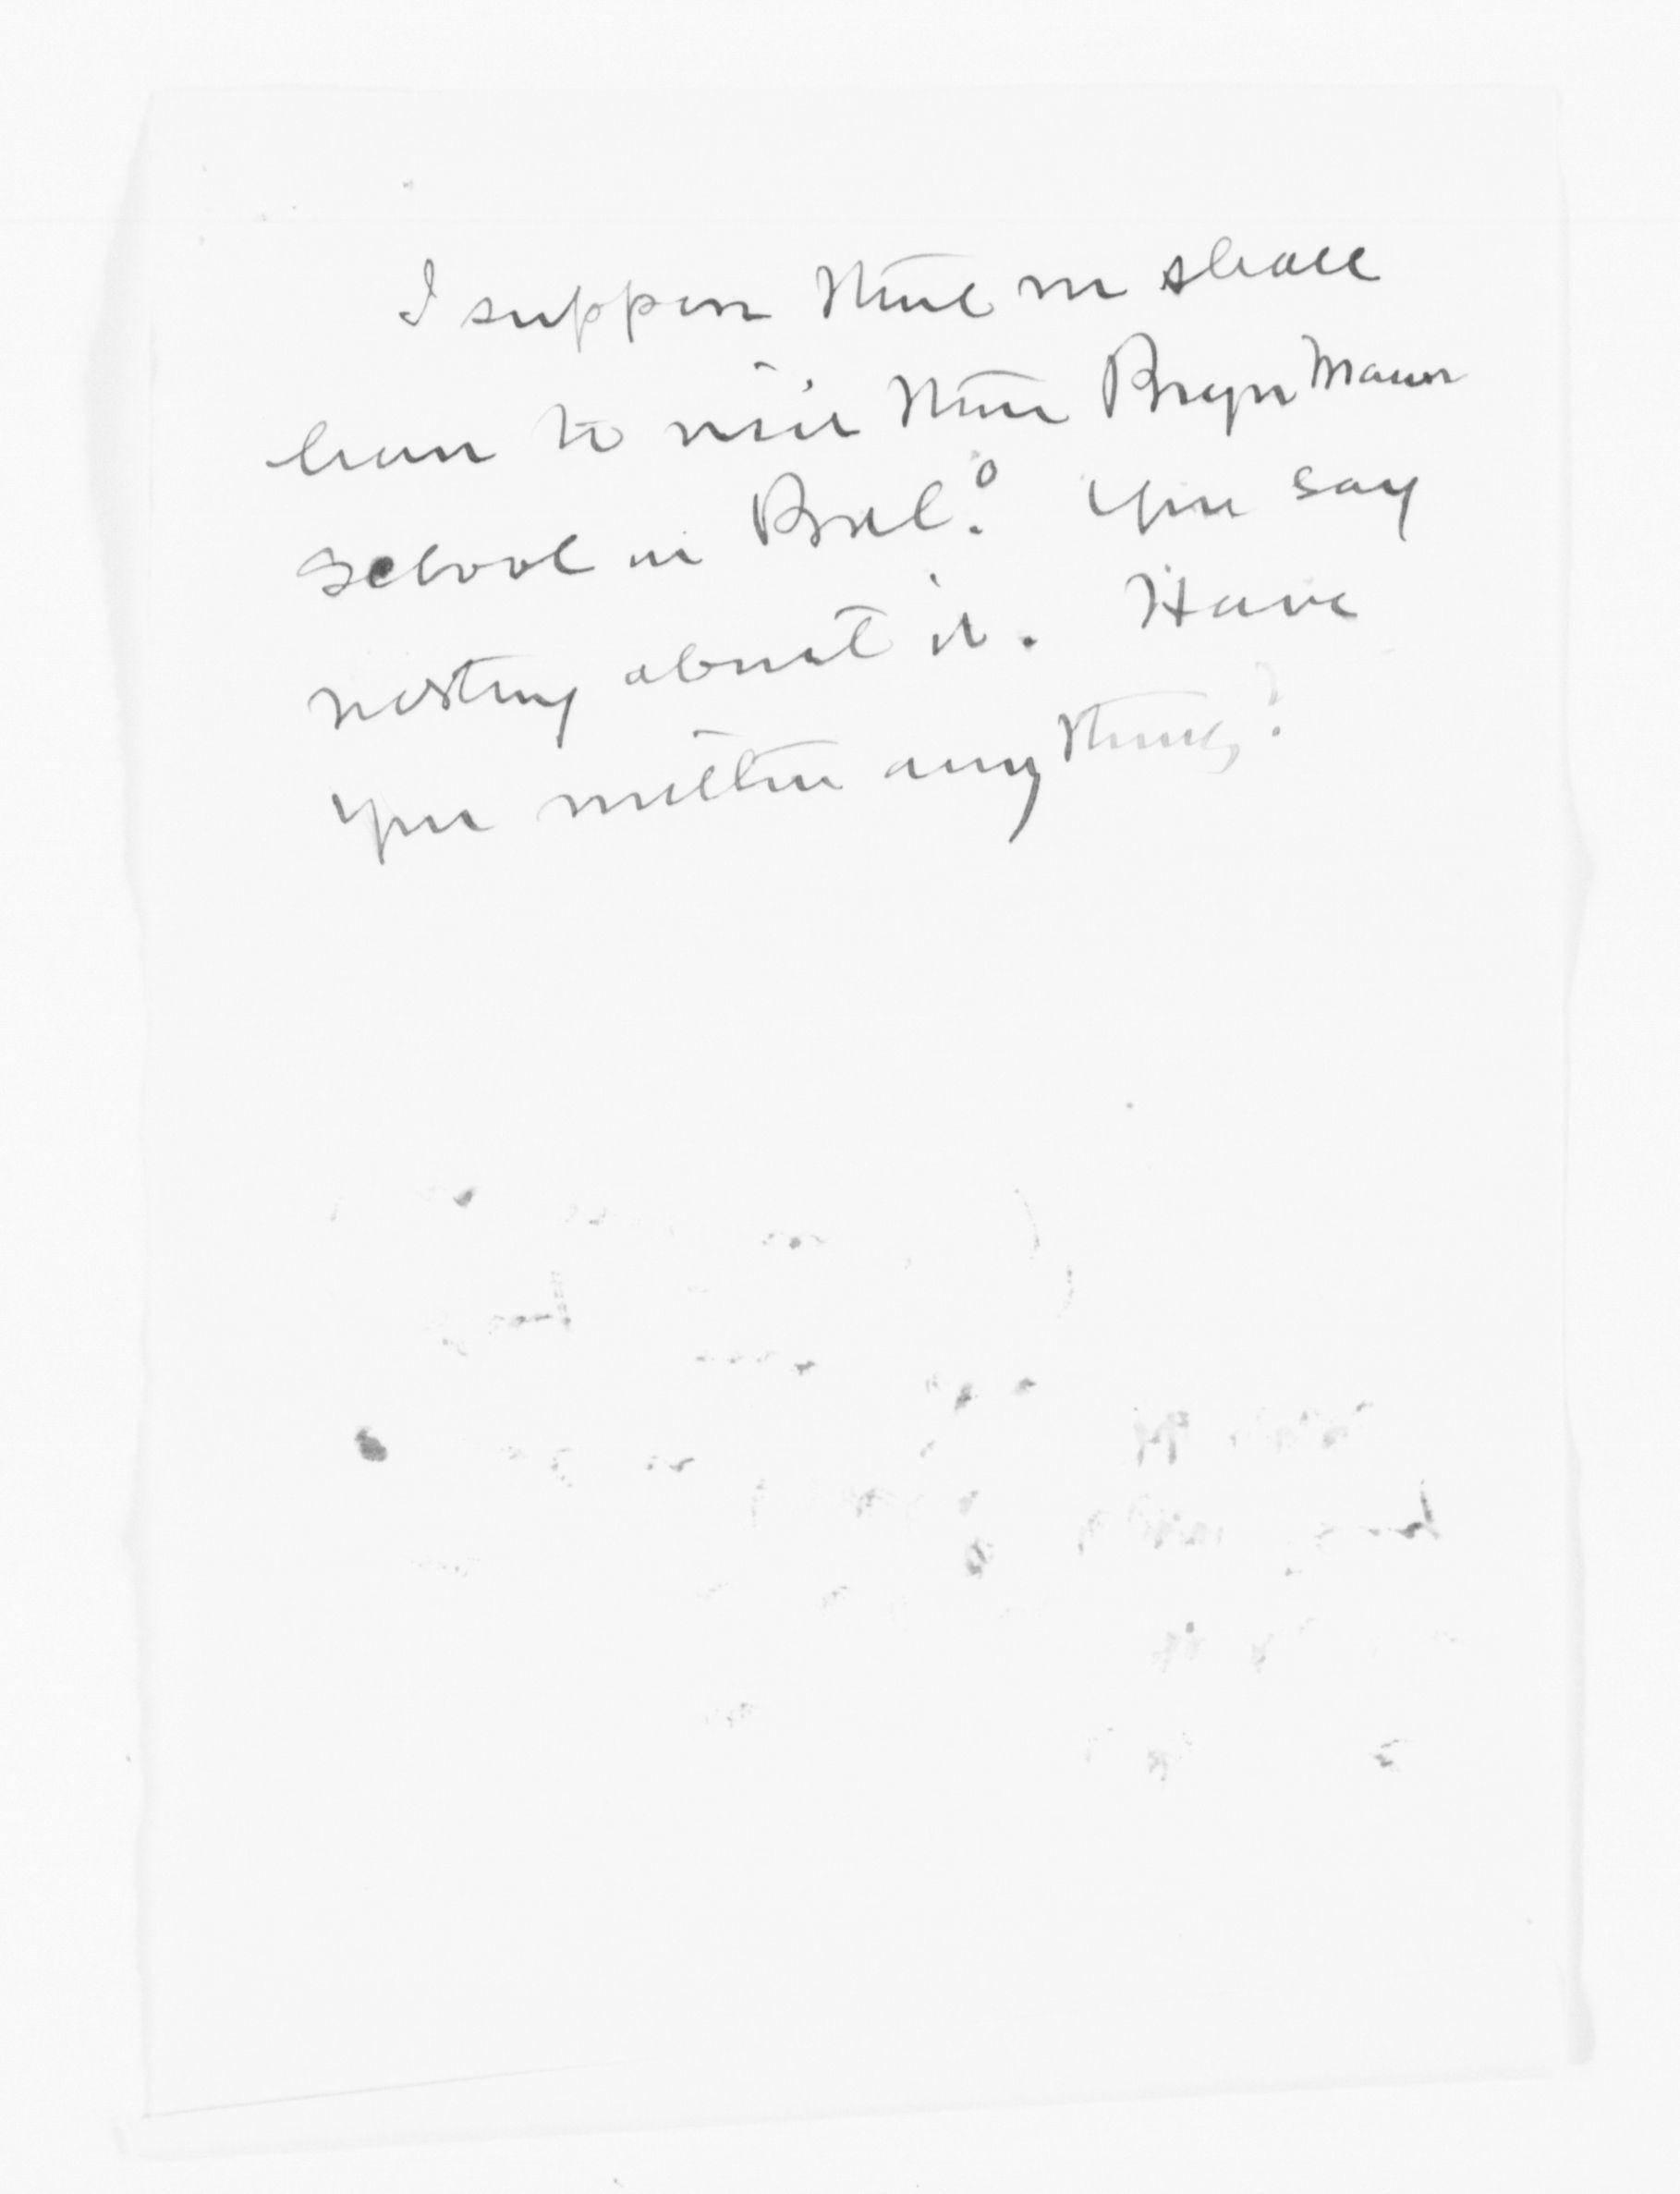 I suppose that we shall
have to visit Bryn Mawr
school in Balt.º You say
nothing about it. Have
you written anything?